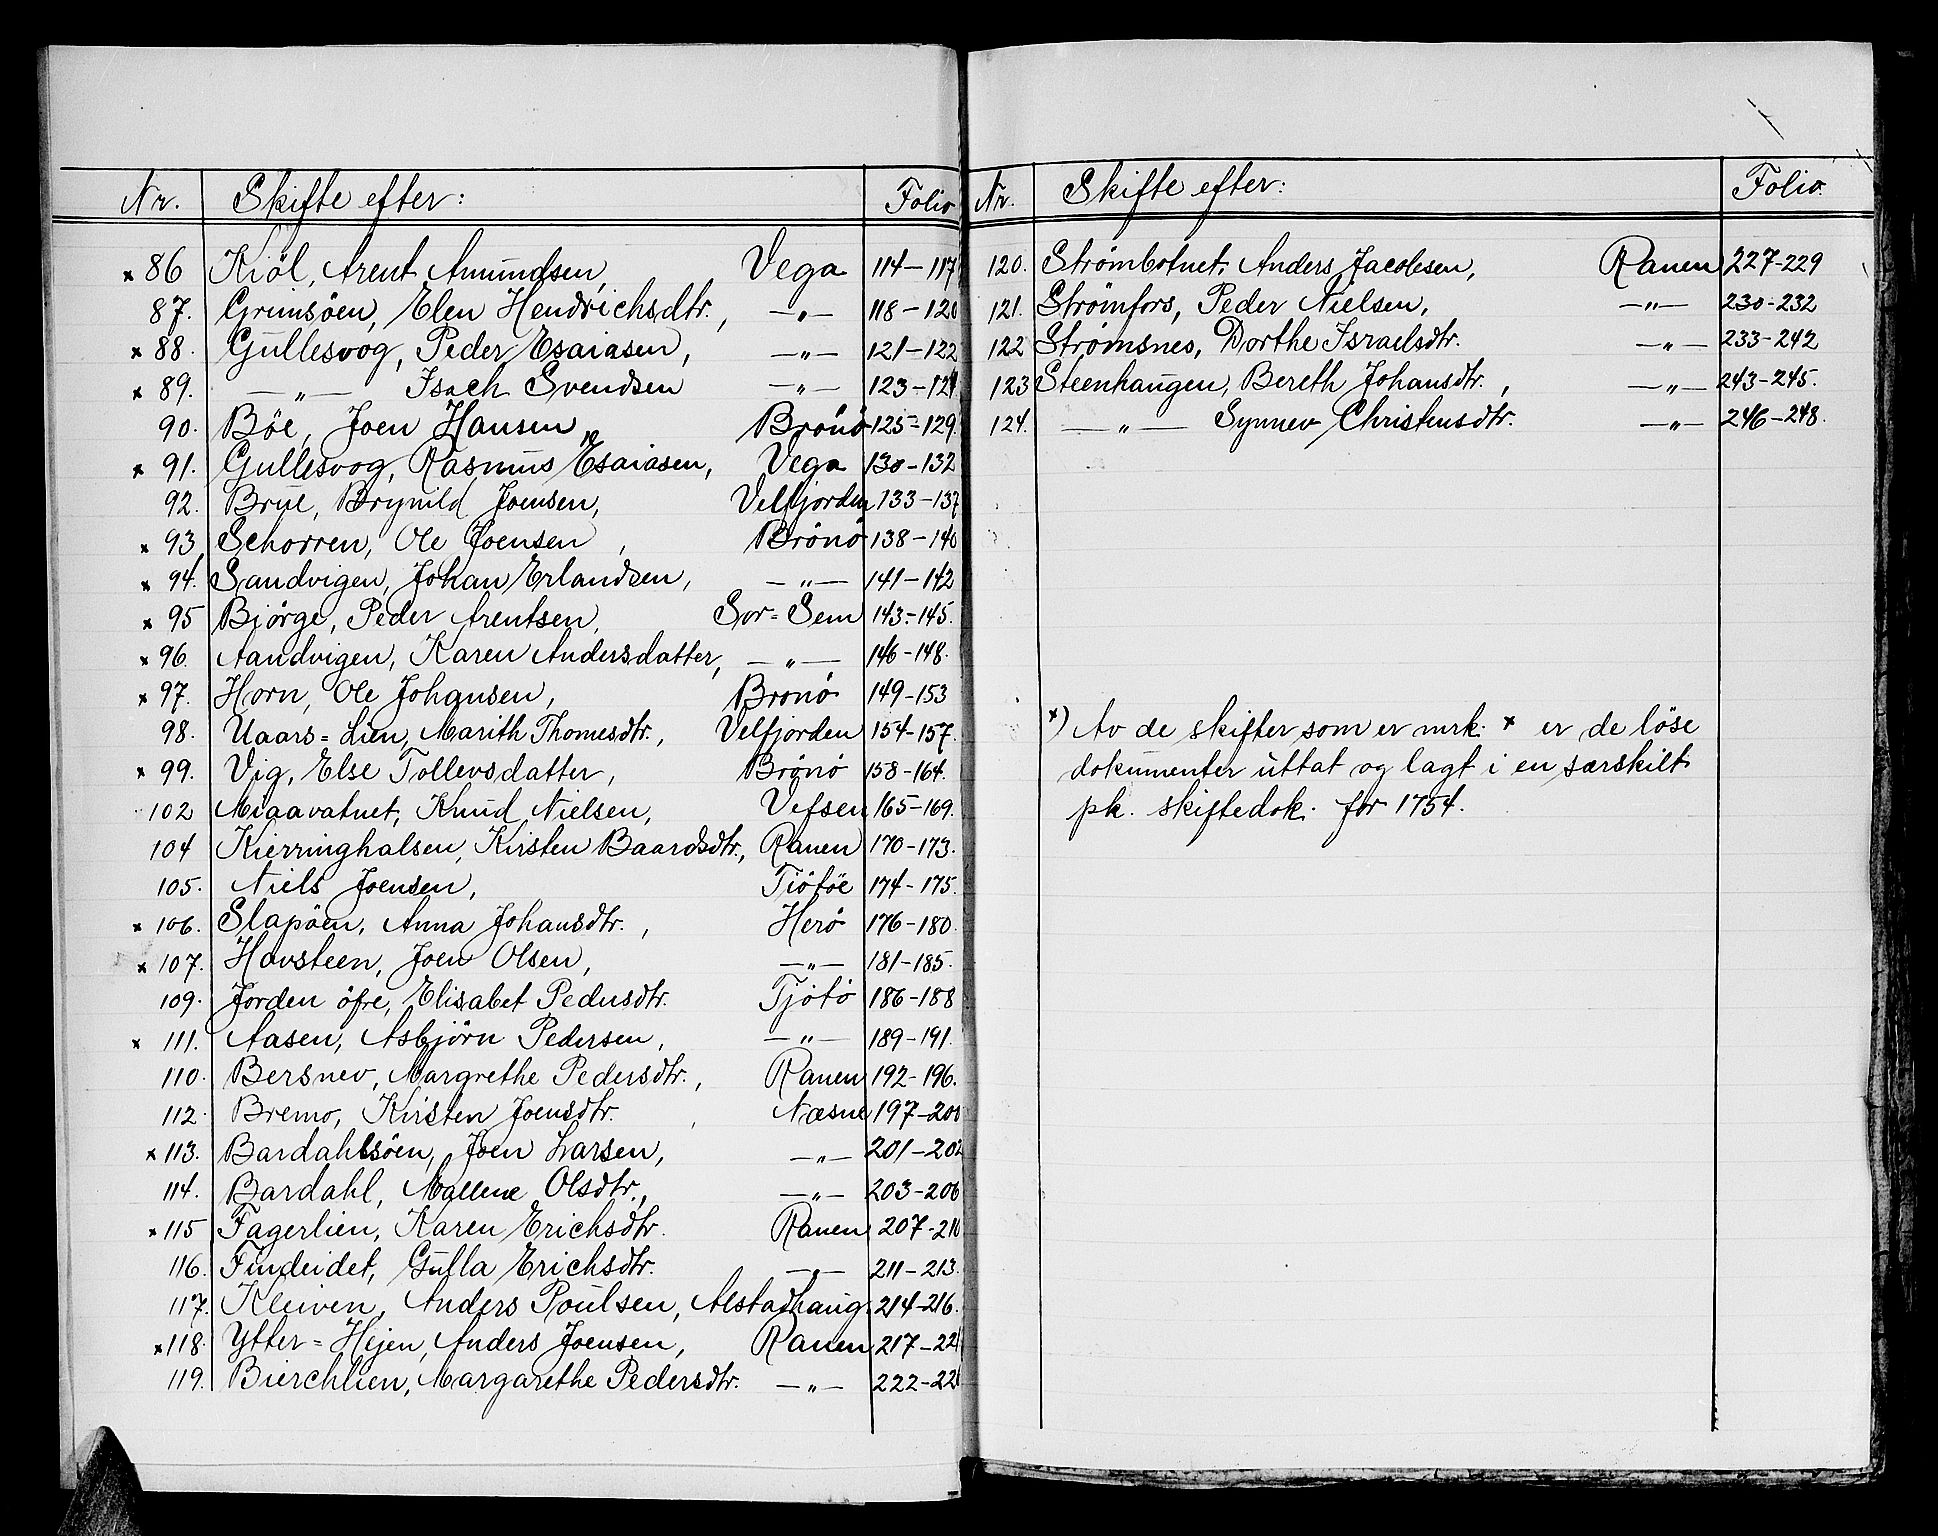 Nr. Skifte efter: Folio
x 86 Kiöl, Arent Amundsen, Vega 114-117
87. Grimsöen, Elen Hendrichsdtr., —"— 118-120
x 88. Gullesvog, Peder Esaiasen, —"— 121-122
x 89. —"— Isach Svendsen —"— 123-124
90. Böe, Joen Hansen, Brönö 125-129
x 91. Gullesvog, Rasmus Esaiasen, Vega 130-132
92. Brue, Brynild Joensen, Velfjorden 133-137
x 93 Schorren, Ole Joensen, Brönö 138-140
x 94. Sandvigen, Johan Erlandsen, —"— 141-142
x 95 Björge, Peder Arentsen, Sor=Sem 143-145.
x 96. Aandvigen, Karen Andersdatter, —"— 146-148.
x 97. Horn, Ole Johansen, Bronö 149-153
98. Uaars=Lien, Marith Thomesdtr., Velfjorden 154-157.
x 99. Vig, Else Tollevsdatter, Brönö 158-164.
102 Miaavatnet, Knud Nielsen, Vefsen 165-169.
104 Kierringhalsen, Kirsten Baardsdtr., Ranen 170-173.
105. Niels Joensen, Tiötöe 174-175.
x 106. Slapöen, Anna Johansdtr., Herö 176-180.
x 107. Havsteen, Joen Olsen, —"— 181-185.
109. Jorden öfre, Elisabet Pedersdtr. Tjötö 186-188
x 111. Aasen, Asbjörn Pedersen, —"— 189-191.
110. Bersnev, Margrethe Pedersdtr., Ranen 192-196.
112. Bremo, Kirsten Joensdtr., Næsne 197-200
x 113. Bardahlsöen, Joen Larsen, —"— 201-202
114. Bardahl, Mallene Olsdtr., —"— 203-206
x 115 Fagerlien, Karen Erichsdtr. Ranen 207-210
116. Findeidet, Gulla Erichsdtr. —"— 211-213.
117. Kleiven, Anders Poulsen, Alstadhaug. 214-216.
x 118. Ytter=Hejen, Anders Joensen, Ranen 217-221
119. Bierchlien, Margarethe Pedersdtr. —"— 222-22
Nr. Skifte efter: Folio.
120. Strömbotnet, Anders Jacobsen, Ranen 227-229
121. Strömfors, Peder Nielsen, —"— 230-232
122 Strömsnes, Dorthe Israelsdtr. —"— 233-242
123 Steenhaugen, Bereth Johansdtr., —"— 243-245.
124. —"— Synnev Christensdtr. —"— 246-248.
x) Av de skifter som er mrk. x er de löse
dokumenter uttat og lagt i en særskilt
pk. skiftedok. for 1754.